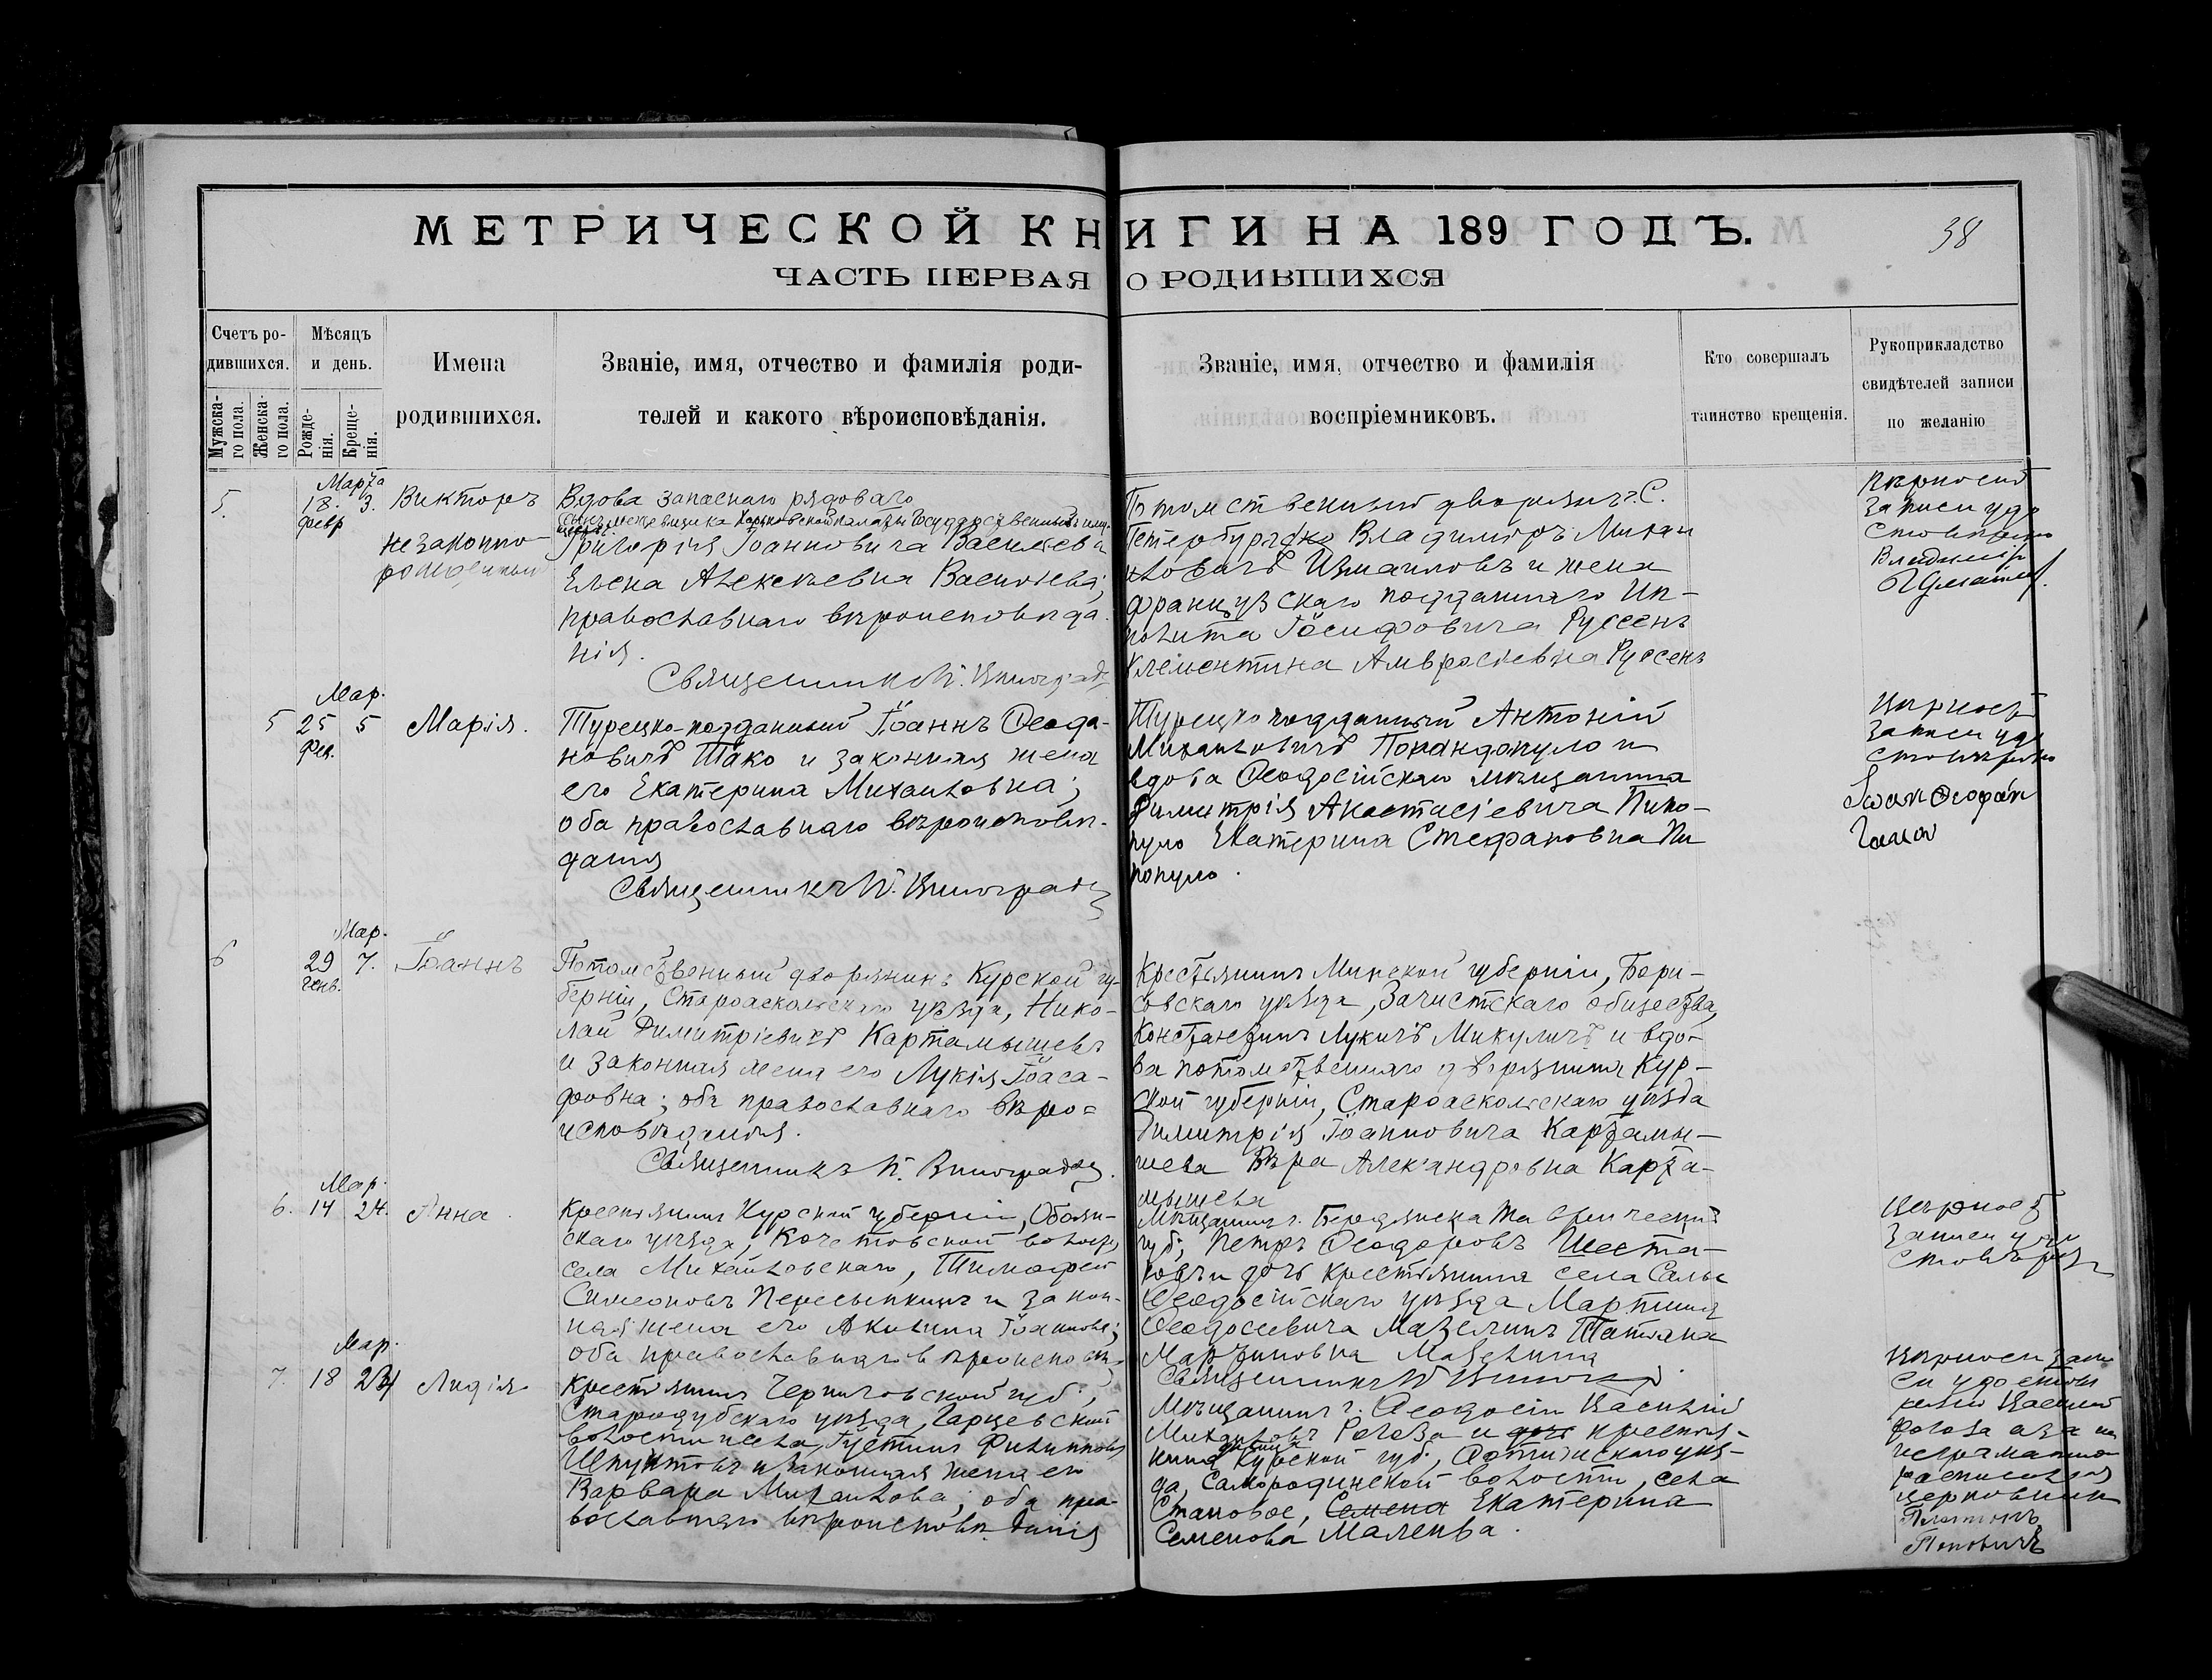 МЕТРИЧЕСКОЙ КНИГИ НА 189 ГОДЪ.
38
ЧАСТЬ ПЕРВАЯ О РОДИВШИХСЯ
Счетъ ро-
дившихся.
Мужска-
го пола.
Женска-
го пола.
Мѣсяцъ
и день.
Рожде-
нія.
Креще-
нія.
Имена
родившихся.
Званіе, имя, отчество и фамилія роди-
телей и какого вѣроисповѣданія.
Званіе, имя, отчество и фамилія
воспріемниковъ.
Кто совершалъ
таинство крещенія.
Рукоприкладство
свидѣтелей записи
по желанію
Марта
5. 18. 3. Викторъ
февр
незаконно-
рожденный
Вдова запаснаго рядоваго
Григорія Іоанновича Васильева
Елена Алексѣевна Васильева;
православнаго вѣроисповѣда-
нія.
Священникъ Виноградо
Потомственный дворянинъ г. С.
Петербурга Владиміръ Михаи
ловичъ Измаиловъ и жена
французскаго подданнаго Ип-
полита Іосифовича Руссенъ
Клементина Амвросіевна Руссенъ
записи удо
Мар.
5 25 5 Марія.
Фев.
Турецко-подданный Іоаннъ Ѳеофа-
новичъ Тако и законная жена
его Екатерина Михаиловна;
оба православнаго вѣроисповѣ-
данія
Священникъ Виноградо
Турецкоподданный Антоній
Михаиловичъ Попандопуло и
вдова Ѳеодосійскаго мѣщанина
Димитрія Анастасіевича Пипо-
пуло Екатерина Стефановна Пи
популо.
записи удо
Іоан Ѳеофан
Мар.
6 29 7. Іоаннъ
генв.
Потомственный дворянинъ Курской гу-
берніи, Староаскольскаго уѣзда, Нико-
лай Димитріевичъ Картамышевъ
и законная жена его Лукія Іоаса-
фовна; оба православнаго вѣро-
исповѣданія.
Священникъ Виноградо
Крестьянинъ Минской губерніи, Бори-
совскаго уѣзда, Зачистскаго общества,
Константинъ Лукичъ Микуличъ и вдо-
ва потомственнаго дворянина Кур-
ской губерніи, Староаскольскаго уѣзда
Димитрія Іоанновича Картамы-
шева Вѣра Александровна Карта-
мышева
Мар.
6. 14 24. Анна.
Крестьянинъ Курской губерніи, Обоян-
скаго уѣзда, Кочетовской волости,
села Михайловскаго, Тимофей
Симеоновъ Пересыпкинъ и закон-
ная жена его Акилина Іоаннова;
оба православнаго вѣроисповѣ
Мѣщанинъ г. Бердянска Таврической
губ; Петръ Ѳеодоровъ Шеста-
ковъ и дочь крестьянина села Салы
Ѳеодосійскаго уѣзда Мартина
Ѳеодосевича Мазелинъ Татіана
Мартиновна Мазелина
Священникъ
записи удо
стовѣряю
Мар.
7. 18 24 Лидія
Крестьянинъ Черниговской губ,
Стародубскаго уѣзда, Гарцевской
волости и села, Густинъ Филипповъ
Шпунтовъ и законная жена его
Варвара Михаилова; оба пра-
вославнаго вѣроисповѣданія
Мѣщанинъ г. Ѳеодосіи Василій
Михаиловъ Рогоза и дочь крестья-
Курской губ,
да, Самородинской волости, села
Становое, Семена Екатерина
Семенова Малеева.
си удостовѣ
ряетъ Василій
Рогоза а за не
неграмотно
расписался
церковникъ
Платонъ
Поповичъ